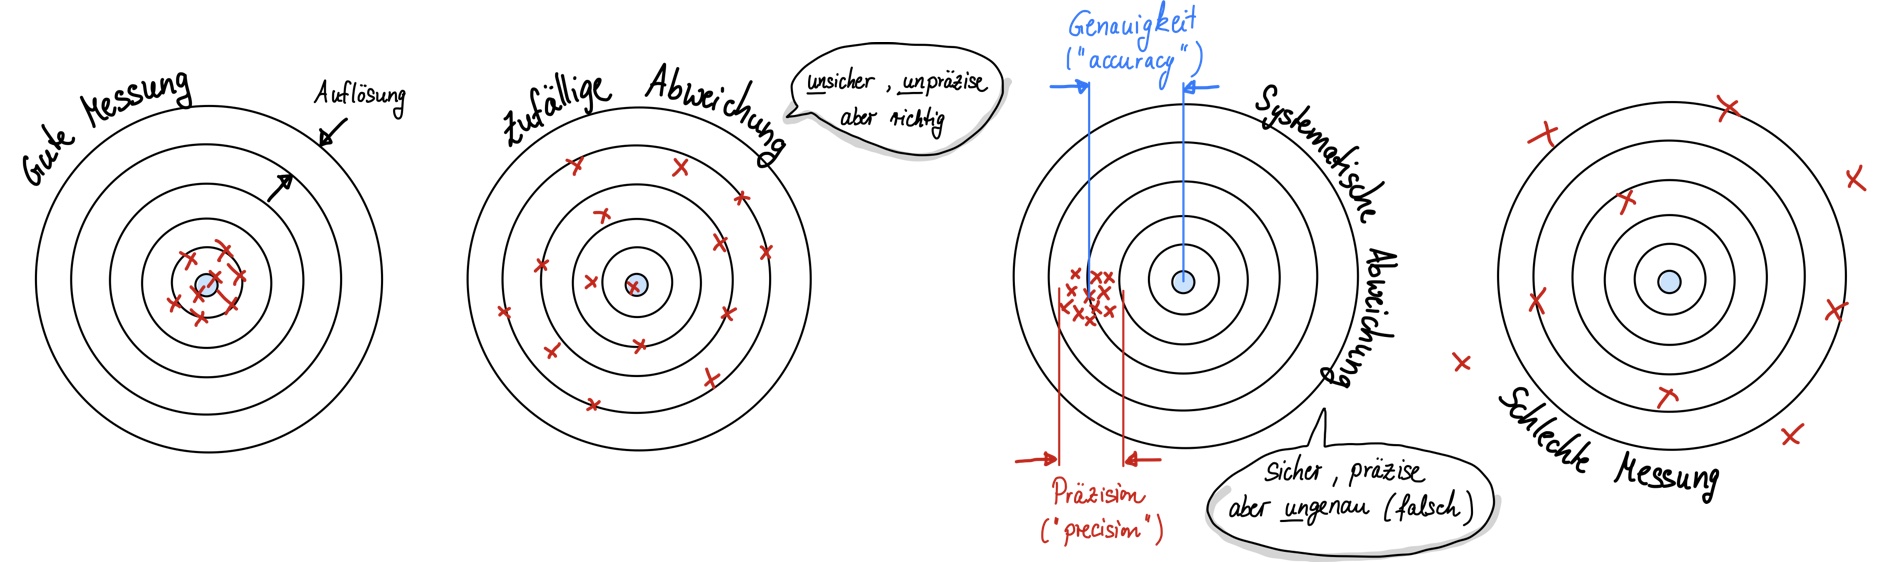 Gute Messung
Auflösung
Zufällige Abweichung
unsicher, unpräzise
aber richtig
Genauigkeit
("accuracy")
Systematische Abweichung
Präzision
("precision")
sicher, präzise
aber ungenau (falsch)
Schlechte Messung